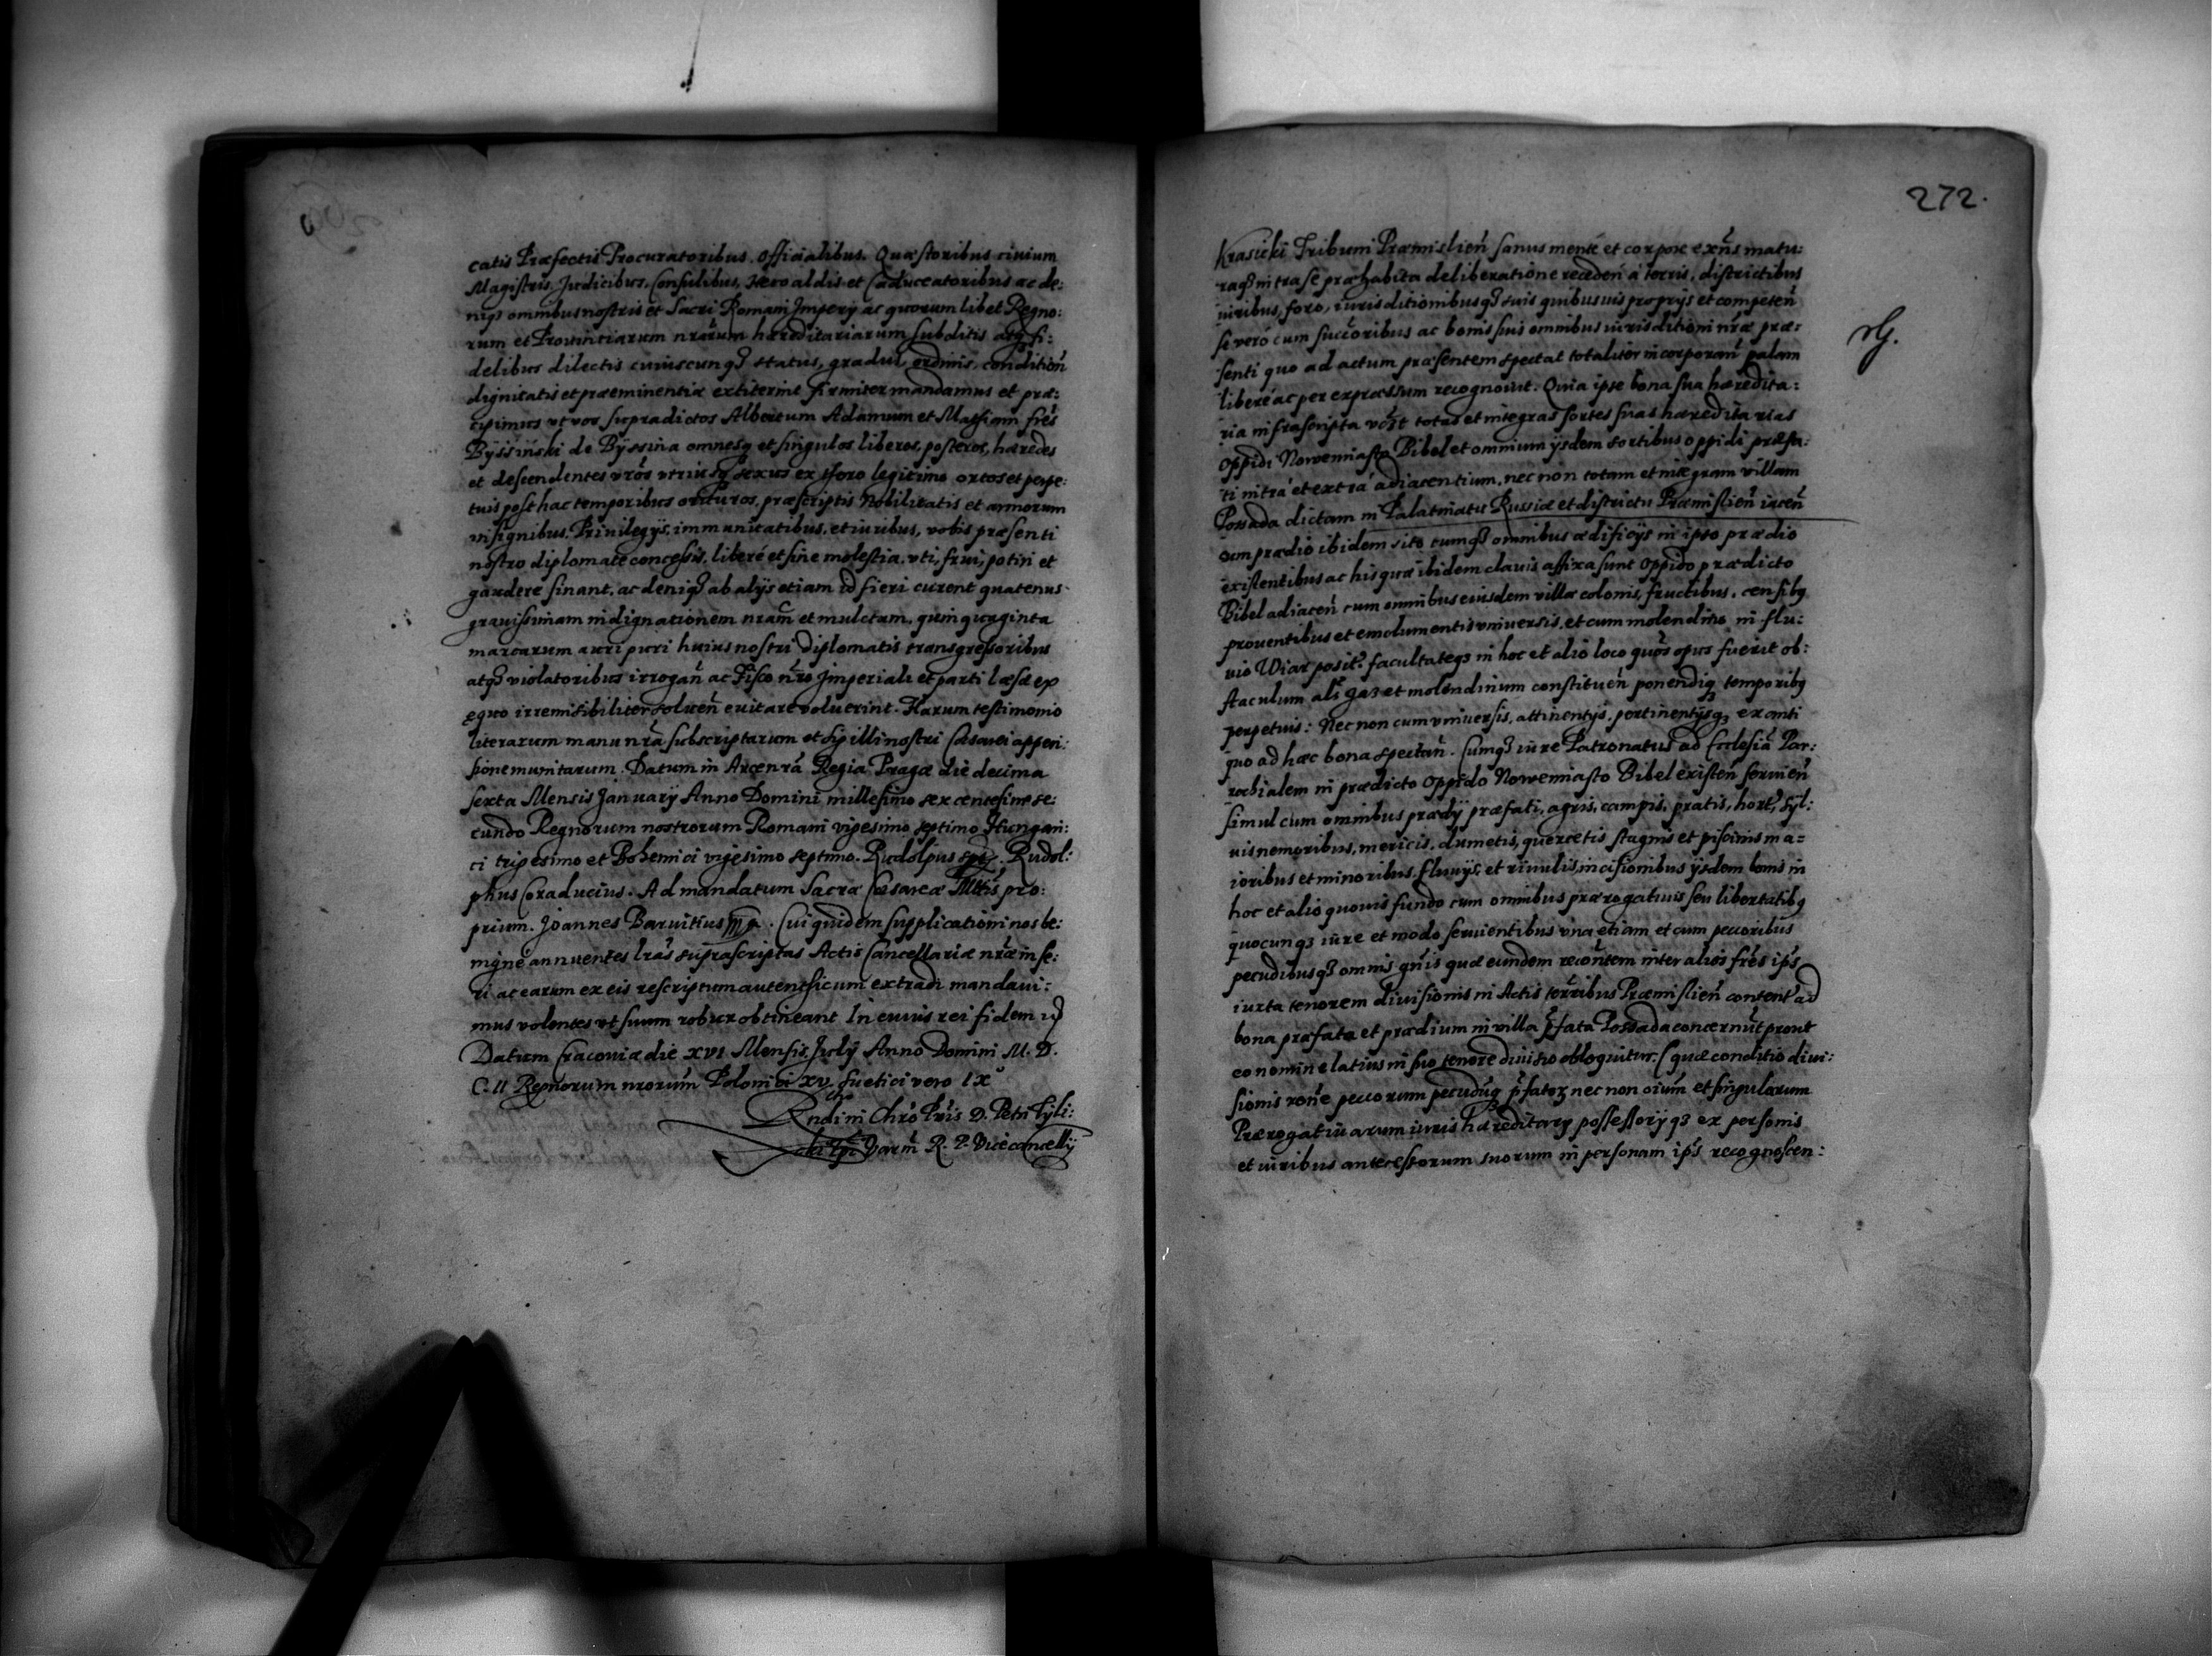 catis Præfectis Procuratoribus. Officialibus. Quæstoribus civium
Magistris, Judicibus, Consulibus, Heroaldis et Caduceatoribus ac de:
niqз omnibus nostris et Sacri Romani Imperij ac quorum libet Regno:
rum et Provinciarum nrārum hæreditariarum subditis atqз fi:
delibus dilectis cuiuscunqз status, gradus, ordinis, condition̄
dignitatis et præeminentiæ extiterint firmiter mandamus et præ:
cipimus vt vos supradictos Albertum Adamum et Mathiam frēs
Byssinski de Byssina omnesqз et singulos liberos, posteros, hæredes
et descendentes vr̄os vtriusqз sexus ex thoro legitimo ortos et perpe:
tuis post hac temporibus orituros, præscriptis Nobilitatis et armorum
insignibus. Privilegijs, immunitatibus, et iuribus, vobis præsenti
nostro diplomate concessis, liberé et sine molestia, vti, frui, potiri et
gaudere sinant, ac deniqз ab alijs etiam id fieri curent quatenus
gravissimam indignationem nrām et mulctam, quinquaginta
marcarum auri puri huius nostri diplomatis transgressoribus
atqз violatoribus irrogan̄ ac Fisco nr̄o Imperiali et parti læsæ ex
ęquo irremisibiliter solven̄ evitare voluerint. Harum testimonio
literarum manu nr̄a subscriptarum et Sigilli nostri Cæsarei appen:
sione munitarum. Datum in Arce nr̄a Regia Pragæ die decima
sexta Mensis Januarij Anno Domini millesimo sexcentesimo se:
cundo Regnorum nostrorum Romani vigesimo septimo Hungari:
ci trigesimo et Bohemici vigesimo septimo. Rudolpus Rudol:
phus Coraducius. Ad mandatum Sacræ Cæsareæ Mttīs pro:
prium. Joannes Barvitius mp. Cui quidem supplicationi nos be:
nigne annuentes lrās suprascriptas Actis Cancellariæ nr̄æ inse:
ri ac earum ex eis rescriptum autenthicum extradi mandavi:
mus volentes vt suum robur obtineant In cuius rei fidem
Datum Cracoviæ die XVI Mensis Julij Anno Domini M. D.
C. II Regnorum nrorum̄ Poloni ci XV. Suetici vero IX°
Rndi in Chr̄o Pr̄is D. Petri Tyli:
cki Epī Varm̄ R. P. Vicecancellij
272.
Krasicki Tribuni Præmislien̄ sanus mente et corpore exn̄s matu:
raqз intra se præhabita deliberatione receden̄ á terris, districtibus
iuribus, foro, iurisditionibusqз suis quibusuis proprijs et competen̄
se veró cum succ̄oribus ac bonis suis omnibus iurisditioni nr̄æ præ:
senti quo ad actum præsentem spectat totaliter incorporan̄ palam
liberé ac per expressum recognovit. Quia ipse bona sua hæredita:
ria infrascripta vd̄zt totas et integras sortes suas hæreditarias
oppidi Nowemiasto Bibel et omnium ijsdem sortibus oppidi præfa:
ti intrá et extrá adiacentium, nec non totam et integram villam
Possada dictam in Palatinatu Russiæ et districtu Præmislien̄ iacen̄
cum prædio ibidem sito cumqз omnibus ædificijs in ipso prædio
existentibus ac his quæ ibidem clavis affixa sunt oppido prædicto
Bibel adiacen̄ cum omnibus eiusdem villæ colonis, fructibus, censibз
proventibus et emolumentis vniversis, et cum molendino in flu:
vio Wiar posit̄. facultateqз in hoc et alio loco quos opus fuerit ob:
staculum als̄ gaz et molendinum constituen̄ ponendiqз temporibз
perpetuis: Nec non cum vniversis, attinentijs, pertinentijsqз ex anti
quo ad hæc bona spectan̄. Cumqз iure Patronatus ad Ecclesiā Par:
rochialem in prædicto oppido Nowemiasto Bibel existen̄ servien̄
simul cum omnibus prædij præfati, agris, campis, pratis, hort̄, syl:
uis nemoribus, mericis, dumetis, quercetis stagnis et piscinis ma:
ioribus et minoribus, fluvijs, et rivulis, incisionibus ijsdem bonis in
hoc et alio quovis fundo cum omnibus prærogativis seu libertatibз
quocunqз iure et modo servientibus vná etiam et cum pecoribus
pecudibusqз omnis gn̄is quæ eundem recōntem inter alios frēs ips̄
iuxta tenorem divisionis in Actis terr̄ribus Præmislien̄ content̄ ad
bona præfata et prædium in villa p̄fata Possada concernūt prout
eo nomine latius in suo tenore divisio obloquitur. (quæ conditio divi:
sionis ron̄e pecorum pecudūqз p̄fatoz nec non oium̄ et singulorum
Prærogativarum iuris hæreditarij possessorijqз ex personis
et iuribus antecessorum suorum in personam ips̄ recognoscen: